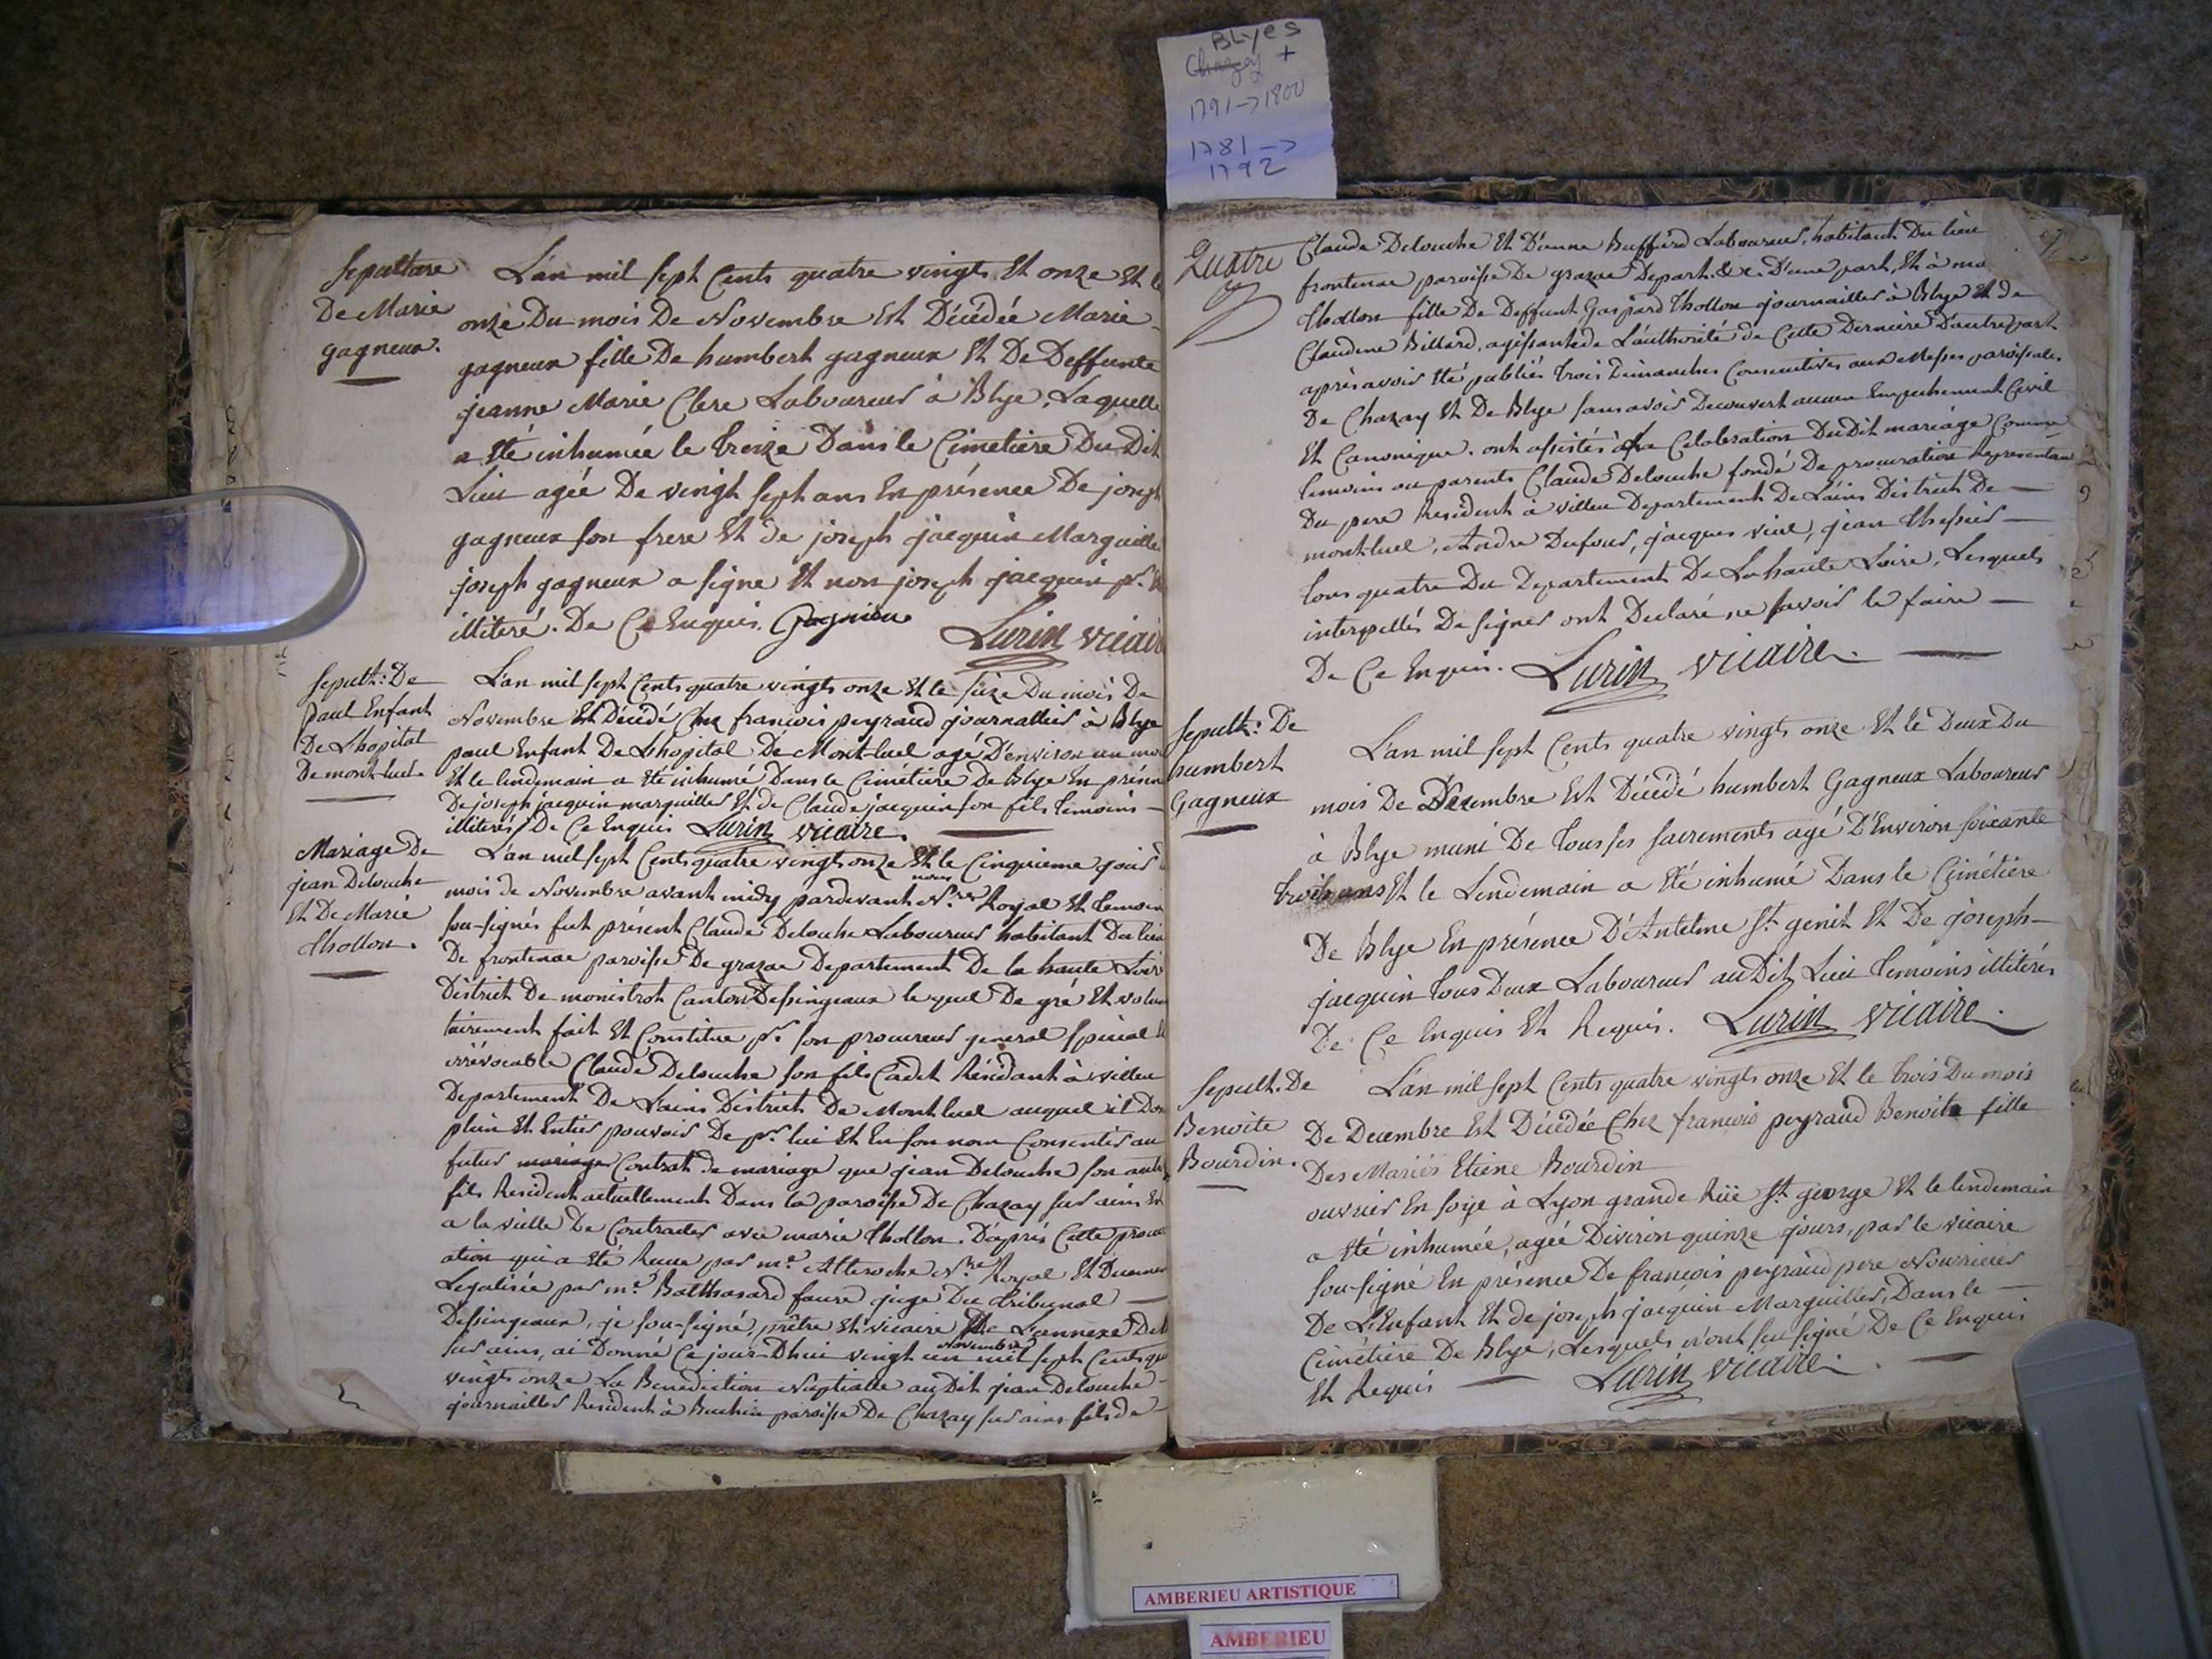 BLyes
Chazey +
1791 -> 1800
1781 ->
1792
Sepulture
De Marie
gagneux.
L'an mil sept Cents quatre vingts Et onze Et l
onze Du mois De Novembre Est Décédée Marie
gagneux fille De humbert gagneux Et De Deffunte
jeanne Marie Clere Laboureur à Blye, Laquelle
a Eté inhumée le treize Dans le Cimetiere Du Dit
Lieu agée De vingt sept ans En présence De joseph
gagneux son frere Et de joseph jacquin Marguillier
joseph gagneux a signe Et non joseph jacquin pr.
illiteré. De Ce Enquis. Gagnieux
Lurin vicair
Sepult: De
paul Enfant
De L'hopital
De mont-luel.
L'an mil sept Cents quatre vingts onze Et le seize Du mois De
Novembre Est Décédé Chez francois peyraud journallier à Blye
paul Enfant De Lhopital De Mont-luel agé D'environ un moi
Et le lendemain a Eté inhumé Dans le Cimétiere De Blye En présen
De joseph jacquin marguillier Et de Claude jacquin son fils temoins
illiterés De Ce Enquis Lurin vicaire
Mariage De
jean Delouche
Et De Marie
thollon.
L'an mil sept Cents quatre vingts onze Et le Cinquieme jour
mois de Novembre avant midy pardevant nous N.re Royal Et temoins
sou-signés fut présent Claude Delouche Laboureur habitant Du lieu
De frontenac paroisse De grazac Departement De la haute Loir
District De monistrol Canton Dessingeaux le quel De gré Et volon
tairement fait Et Constitue pr. son procureur general special Et
irrévocable Claude Delouche son fils Cadet Résidant à villeu
Departement De Lains District De Mont luel auquel il Don
plein Et Entier pouvoir De pr. lui Et En son nom Consentir au
futur mariage Contrat de mariage que jean Delouche son autre
fils Resident actuellement Dans la paroisse De Chazay sur ains Est
a la vielle De Contracter avec marie thollon. D'après Cette procur
ation qui a Eté Recue par me. Alteroche N.re Royal Et Duement
Legalisée par me. Balthasard faure juge Du tribunal
Dessingeaux, je sou-signé, prêtre Et vicaire De L'annexe De
sur ains, ai Donné Ce jour-Dhui vingt un novembre mil sept Cents qua
vingts onze La Benediction Nuptialle au Dit jean Delouche
journallier Resident à Buchin paroisse De Chazay sur ains fils de
Quatre
Claude Delouche Et D'anne Bufferd Laboureur, habitant Du lieu
frontenac paroisse De grazac Depart. &c. D'une part, Et à ma
thollon fille De Deffunt Gaspard thollon journallier à Blye Et de
Claudine Billard, agissante de L'authorité de Cette Derniere D'autre part
après avoir Eté publiés trois Dimanches Consecutives aux Messes paroissiales
De Chazay Et De Blye sans avoir Decouvert aucun Empechement Civil
Et Canonique. ont assistés à La Celebration Du Dit mariage Comme
temoins ou parents Claude Delouche fondé De procuration Representant
Du pere Resident à villeu Departement De Lains District De
mont-luel, Andre Dufour, jacques vial, jean thessier
tous quatre Du Departement De La haute Loire, Lesquels
interpellés De signer ont Declaré ne savoir le faire
De Ce Enquis. Lurin vicaire.
Sepult: De
humbert
Gagneux
L'an mil sept Cents quatre vingts onze Et le Deux Du
mois De Décembre Est Décédé humbert Gagneux Laboureur
à Blye muni De tous ses sacrements agé D'Environ soixante
trois ans Et le Lendemain a Eté inhumé Dans le Cimétiere
De Blye En présence D'Antelme St. genit Et De joseph
jacquin tous Deux Laboureur au Dit Lieu temoins illiterés
De Ce Enquis Et Requis. Lurin vicaire.
Sepult. De
Benoite
Bourdin.
L'an mil sept Cents quatre vingts onze Et le trois Du mois
De Decembre Est Décédée Chez francois peyraud Benoite fille
Des Mariés Etiene Bourdin
ouvrier En soye à Lyon grande Rüe St. george Et le lendemain
a Eté inhumée, agée D'iviron quinze jours, par le vicaire
sou-signé En présence De francois peyraud pere Nourricier
De L'Enfant Et de joseph jacquin Marguillier, Dans le
Cimétiere De Blye, Lesquels n'ont seu signé De Ce Enquis
Et Requis Lurin vicaire.
AMBERIEU ARTISTIQUE
AMBERIEU